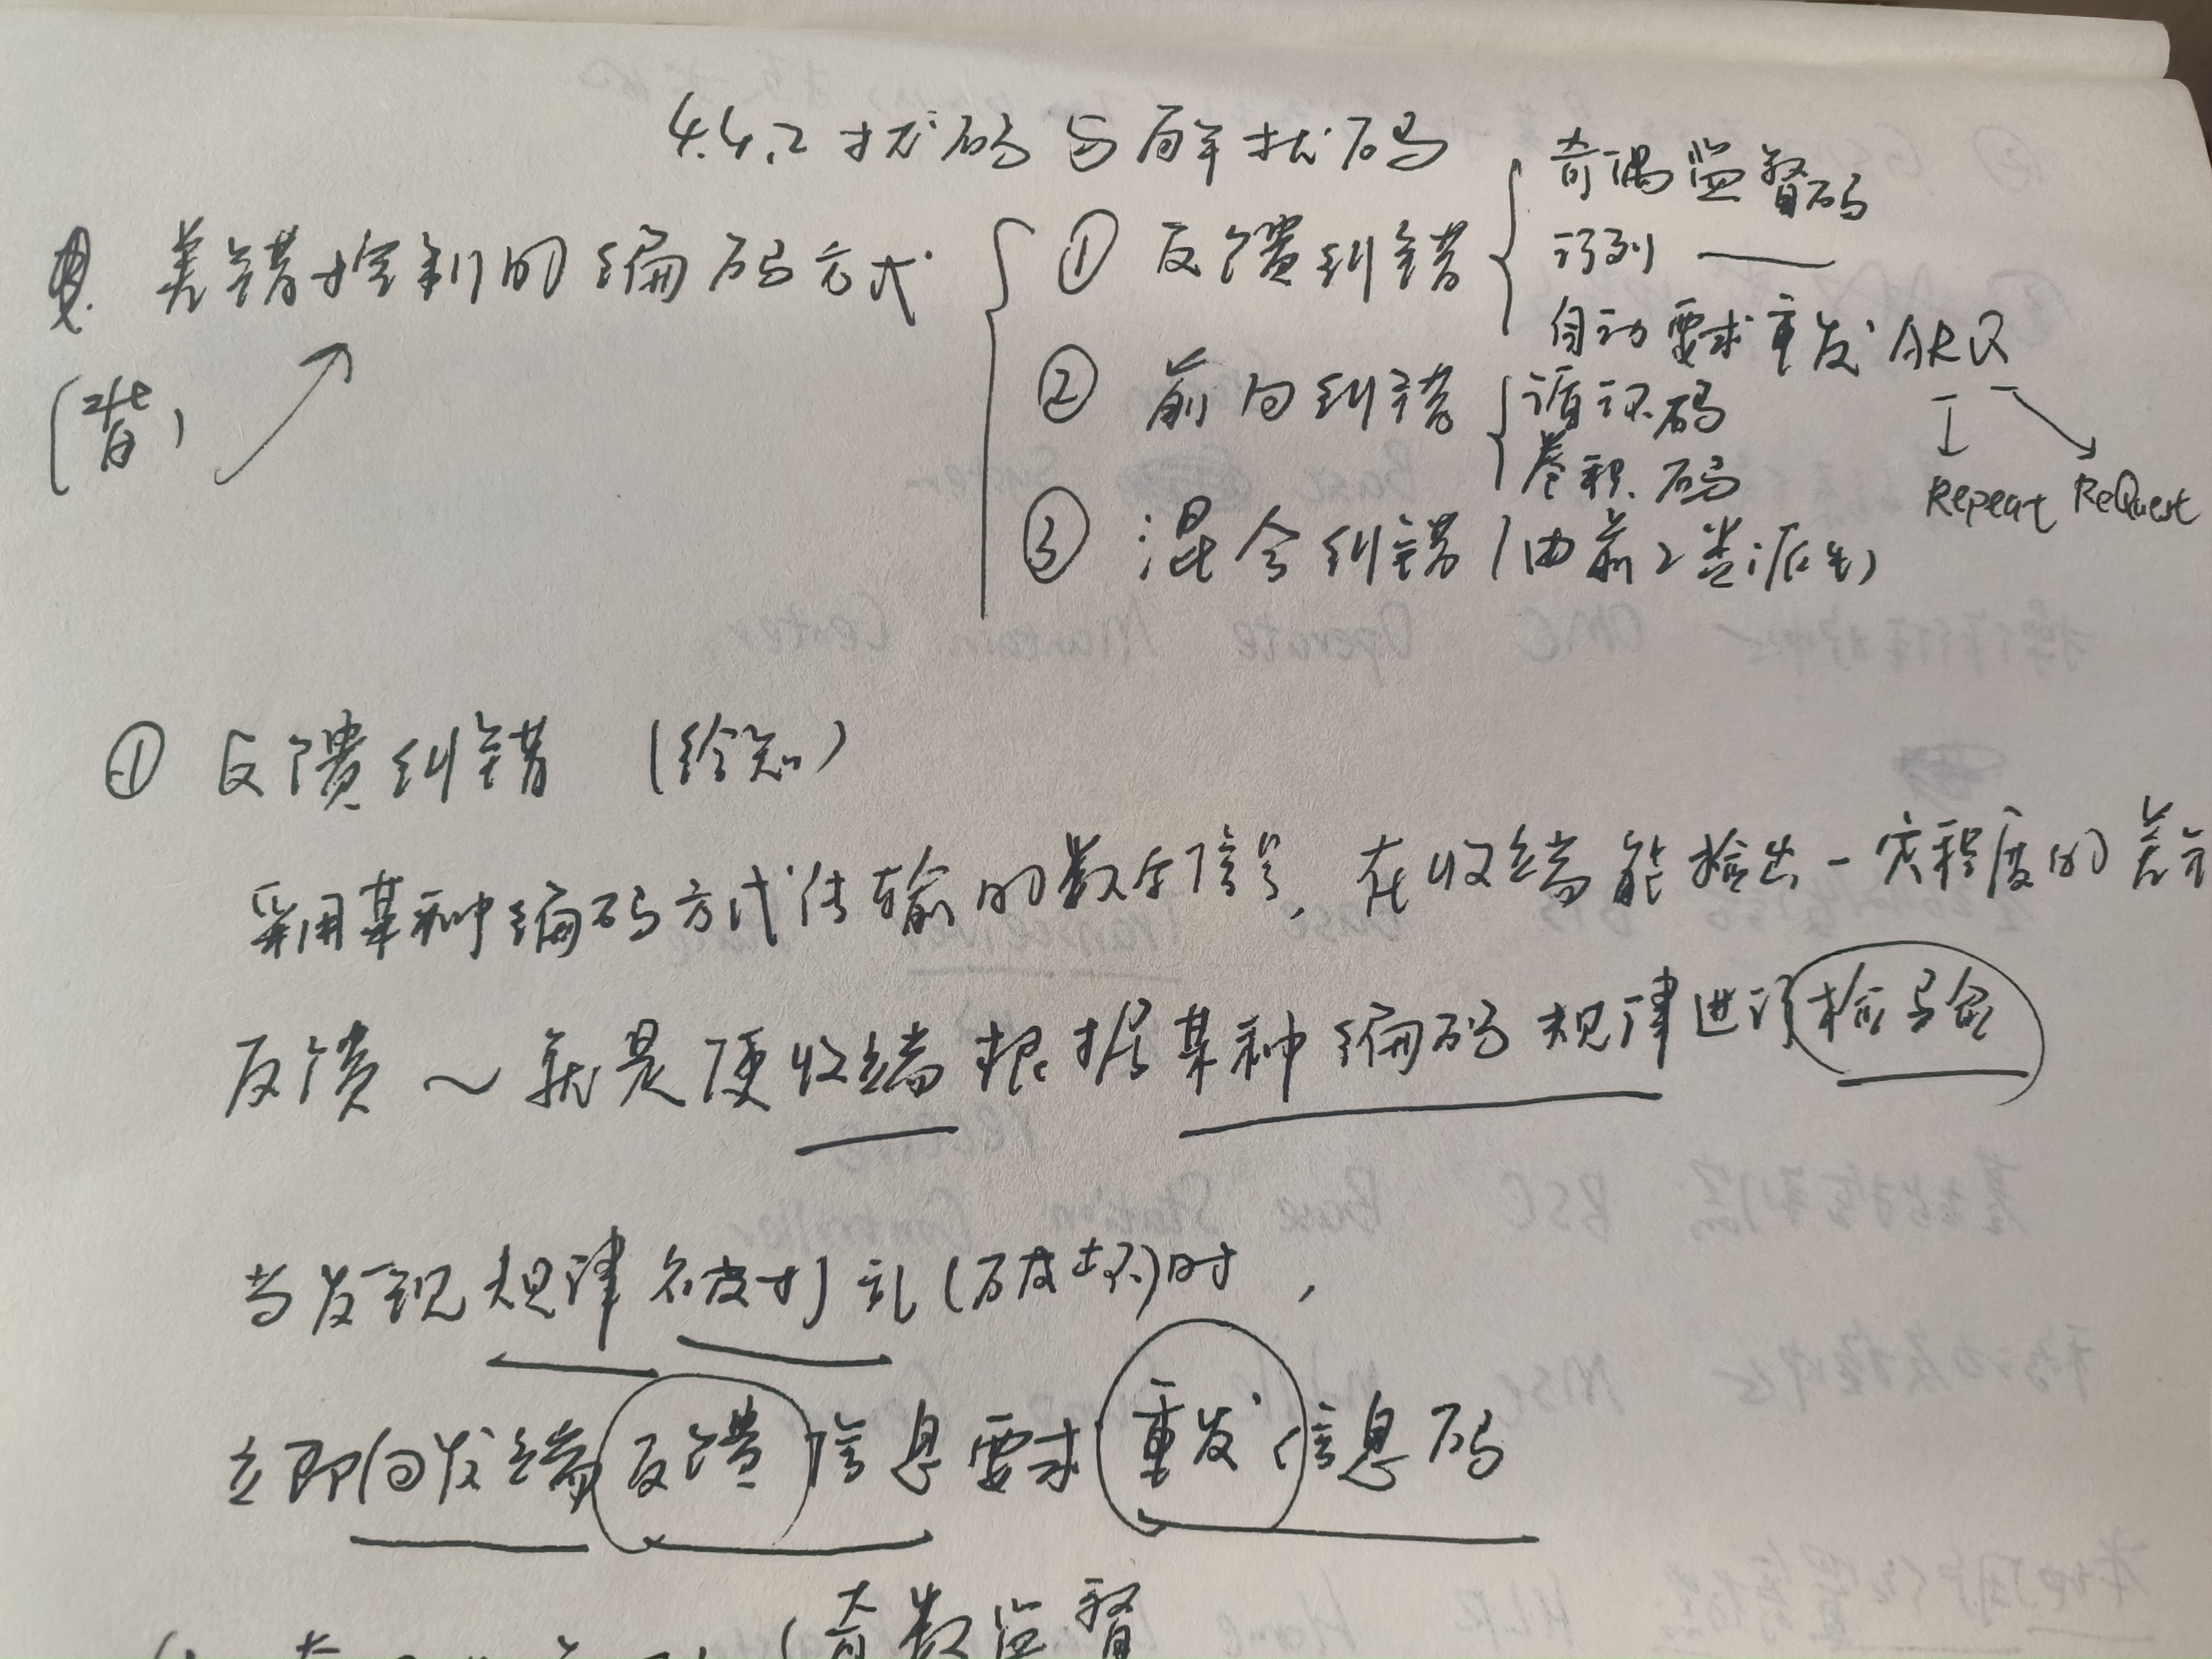 4.4.2 扰码与解扰码
差错控制的编码方式
(背)
① 反馈纠错
奇偶监督码
行列 ——
自动要求重发 ARQ
Repeat ReQuest
② 前向纠错
循环码
卷积码
③ 混合纠错 (由前2类派生)
① 反馈纠错 (给知)
采用某种编码方式传输的数字信号, 在收端能检出一定程度的差
反馈 ~ 就是便收端根据某种编码规律进行检验
当发现规律被打乱(破坏)时,
立即向发端反馈信息要求重发信息码
(奇数监督